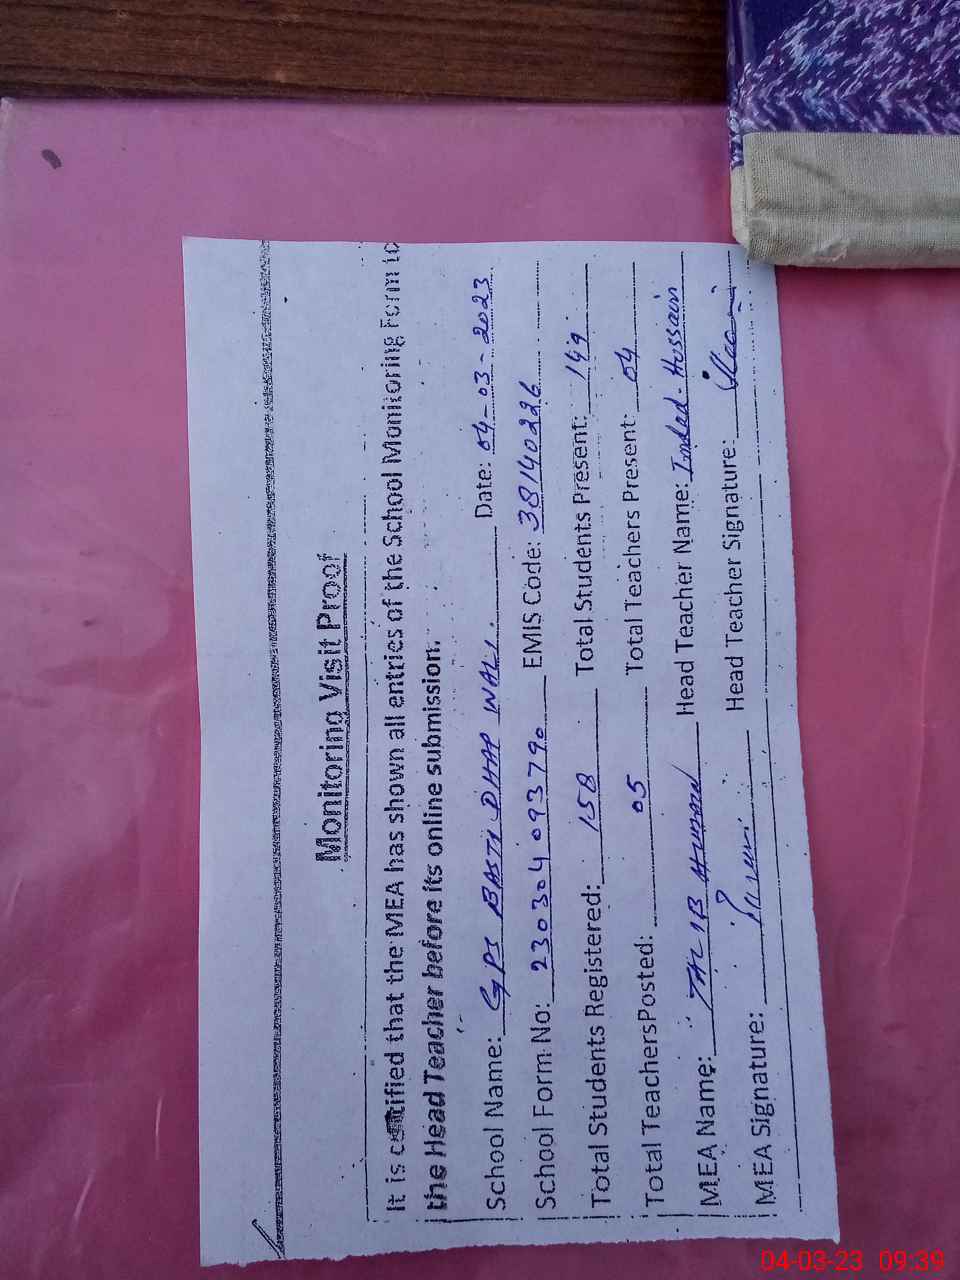 Monitoring Visit Proof
It is certified that the MEA has shown all entries of the School Monitoring Form to
the Head Teacher before its online submission.
School Name: GPS BASTI DHAP WALI. Date: 04-03-2023
School Form No: 230304093790 EMIS Code: 38140226
Total Students Registered: 158 Total Students Present: 149
Total TeachersPosted: 05 Total Teachers Present: 04
MEA Name: TALIB HUSSAIN Head Teacher Name: Imdad-Hussain
MEA Signature: Head Teacher Signature:
04-03-23 09:39